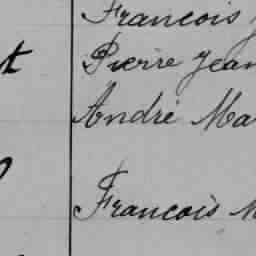 Francois
t Pierre Jean
André Ma
Francois M